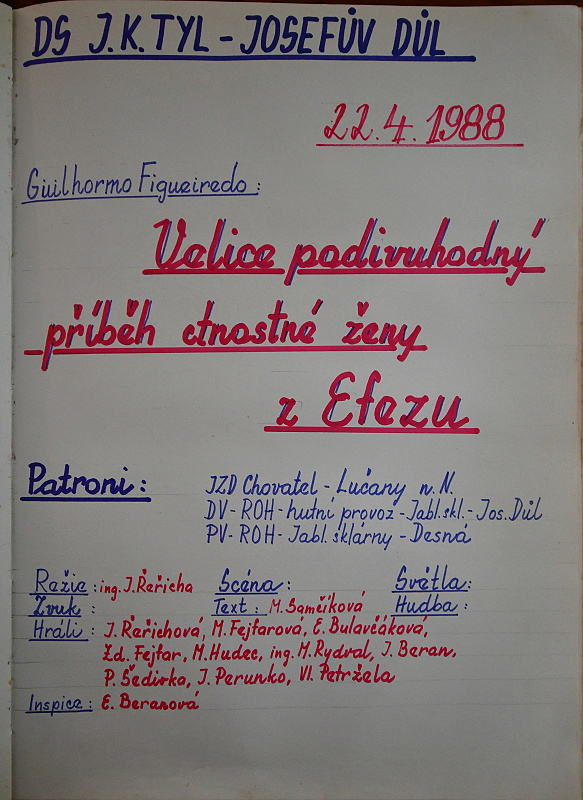 DS J.K.TYL - JOSEFŮV DŮL
22.4.1988
Guilhormo Figueiredo:
Velice podivuhodný
příběh ctnostné ženy
z Efezu
Patroni:
JZD Chovatel - Lučany n.N.
DV-ROH-hutní provoz-Jabl.skl.-Jos.Důl
PV-ROH-Jabl.sklárny-Desná
Režie: ing.J.Řeřicha Scéna: Světla:
Zvuk: Text: M.Samčíková Hudba:
Hráli: J.Řeřichová, M.Fejfarová, E.Bulavčáková,
Zd.Fejfar, M.Hudec, ing.M.Rydval, J.Beran,
P.Šedivka, J.Perunko, Vl.Petržela
Inspice: E.Beranová